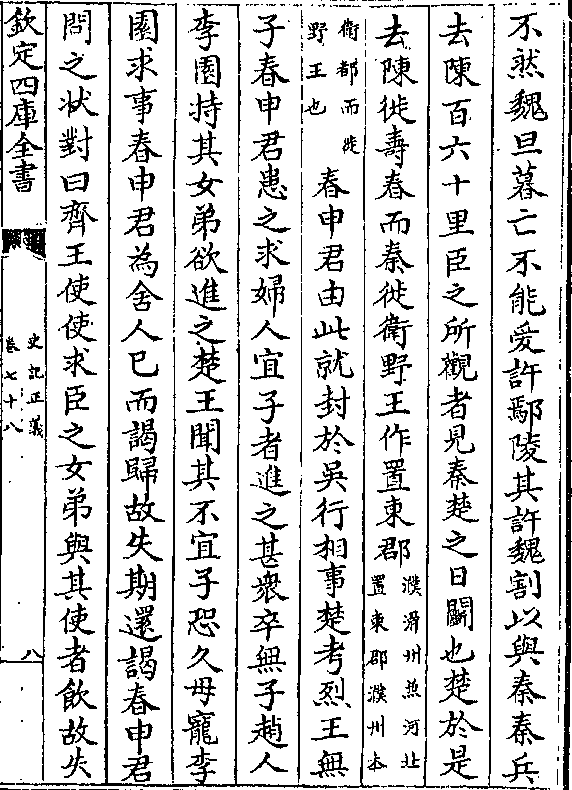 不然魏旦暮亡不能愛許鄢陵其許魏割以與秦秦兵
去陳百六十里臣之所觀者見秦楚之日鬭也楚於是
去陳徙壽春而秦徙衛野王作置東郡濮滑州兼河北
置東郡濮州本
衛都而徙
野王也春申君由此就封於吳行相事楚考烈王無
子春申君患之求婦人宜子者進之甚衆卒無子趙人
李園持其女弟欲進之楚王聞其不宜子恐久毋寵李
園求事春申君為舍人已而謁歸故失期還謁春申君
問之狀對曰齊王使使求臣之女弟與其使者飲故失
欽定四庫全書
史記正義
卷七十八
八